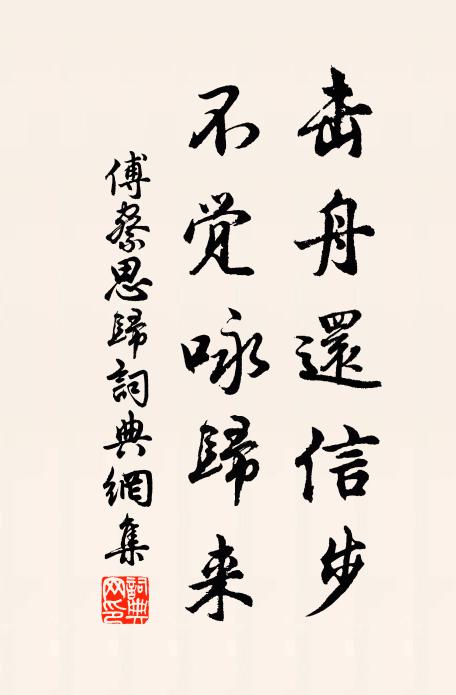 击舟還信步
不觉咏歸来
傅察思歸詞典網集
詞典網印